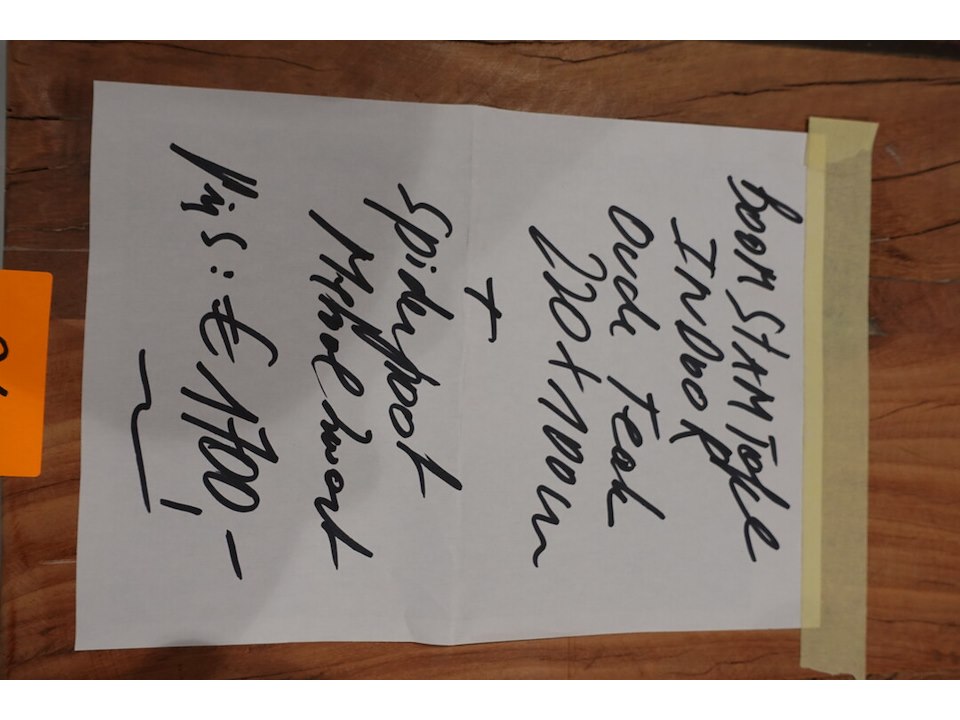 boom STAM Tafel
INDOOR
Oude Teak
220 x 100 cm
+
Spiderpoot
Metaal zwart
Prijs: € 1700 -